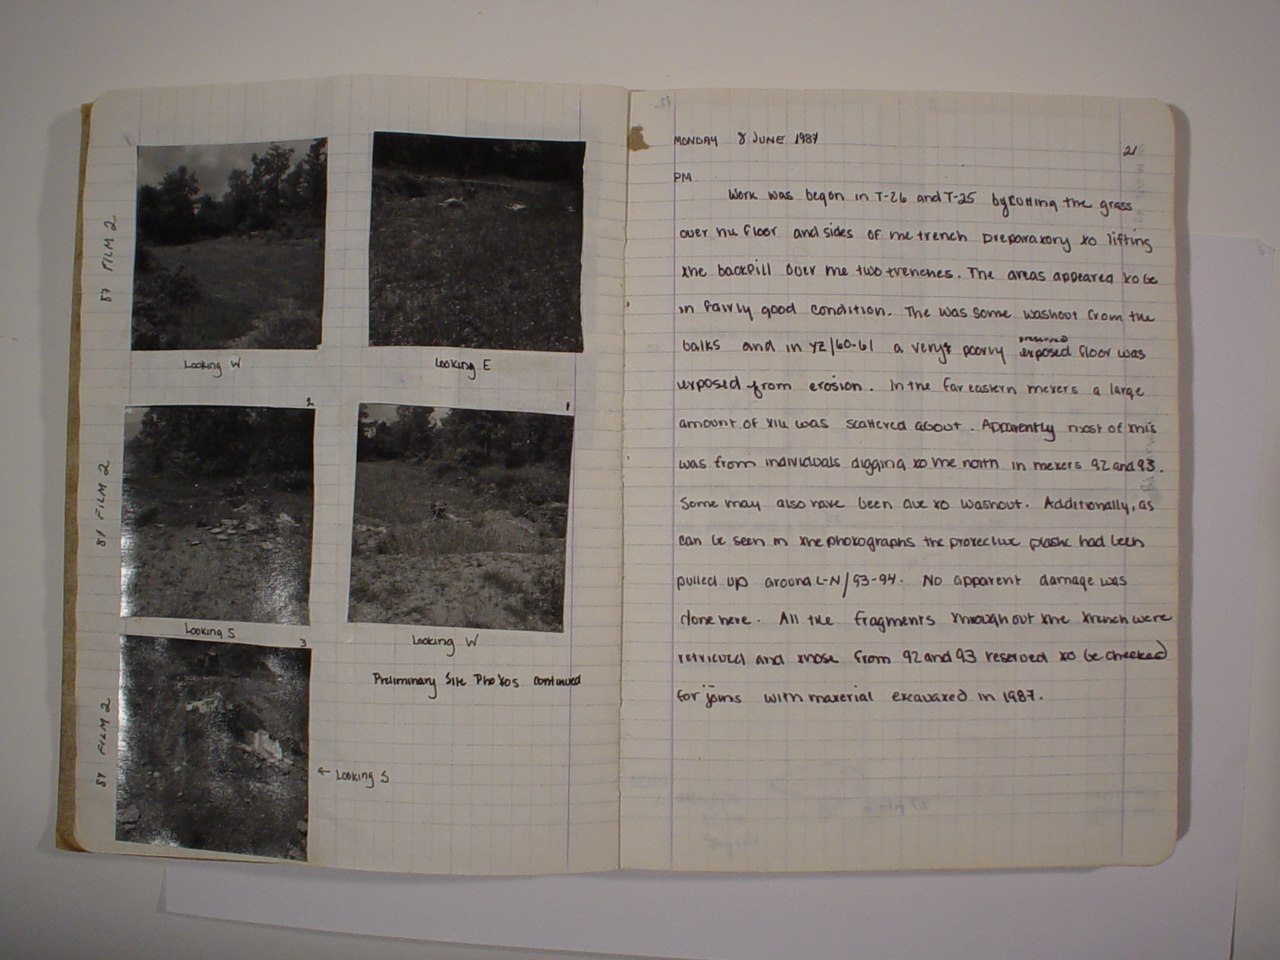 87 FILM 2
Looking W
Looking E
87 FILM 2
2
1
Looking S
Looking W
87 FILM 2
3
Preliminary Site Photos continued
← Looking S
MONDAY 8 JUNE 1987
21
PM
Work was begun in T-26 and T-25 by cutting the grass
over the floor and sides of the trench preparatory to lifting
the backfill over the two trenches. The areas appeared to be
in fairly good condition. The was some washout from the
balks and in YZ/60-61 a very poorly preserved exposed floor was
exposed from erosion. In the far eastern meters a large
amount of tile was scattered about. Apparently most of this
was from individuals digging to the north in meters 92 and 93.
Some may also have been due to washout. Additionally, as
can be seen in the photographs the protective plastic had been
pulled up around L-N/93-94. No apparent damage was
done here. All tile fragments throughout the trench were
retrieved and those from 92 and 93 reserved to be checked
for joins with material excavated in 1987.